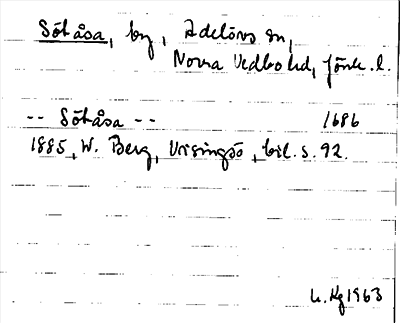 Sötåsa, by, Adelövs sn,
Norra Vedbo hd, Jönk. l.
-- Sötåsa -- 1686
1885, W. Berg, Visingsö, bil. s. 92.
L. Hg 1963